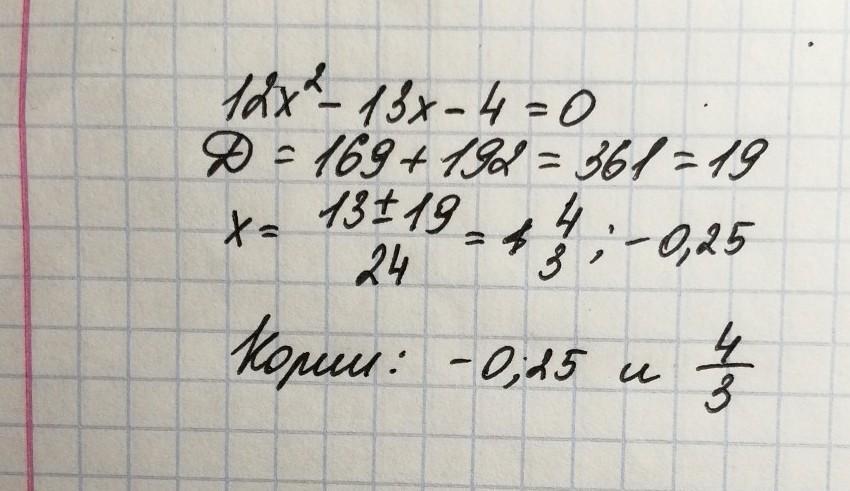 12x² - 13x - 4 = 0
Д = 169 + 192 = 361 = 19
x = 13 ± 19 / 24 = 4/3 ; -0,25
Корни: -0,25 и 4/3